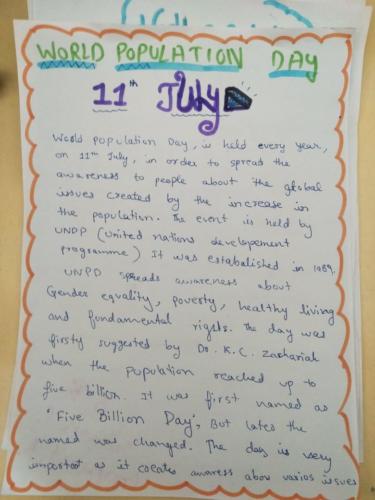 WORLD POPULATION DAY
11th July
World Population Day, is held every year,
on 11th July, in order to spread the
awareness to people about the global
issues created by the increase in
the population. The event is held by
UNDP (United Nations developement
programme) It was estabalished in 1989.
UNPD spreads awareness about
Gender equality, poverty, healthy living
and fundamental rights. The day was
firsty suggested by Dr. K.C. Zachariah
when the population reached up to
five billion. It was first named as
'Five Billion Day', But later the
named was changed. The day is very
important as it creates awaress abou varios issues